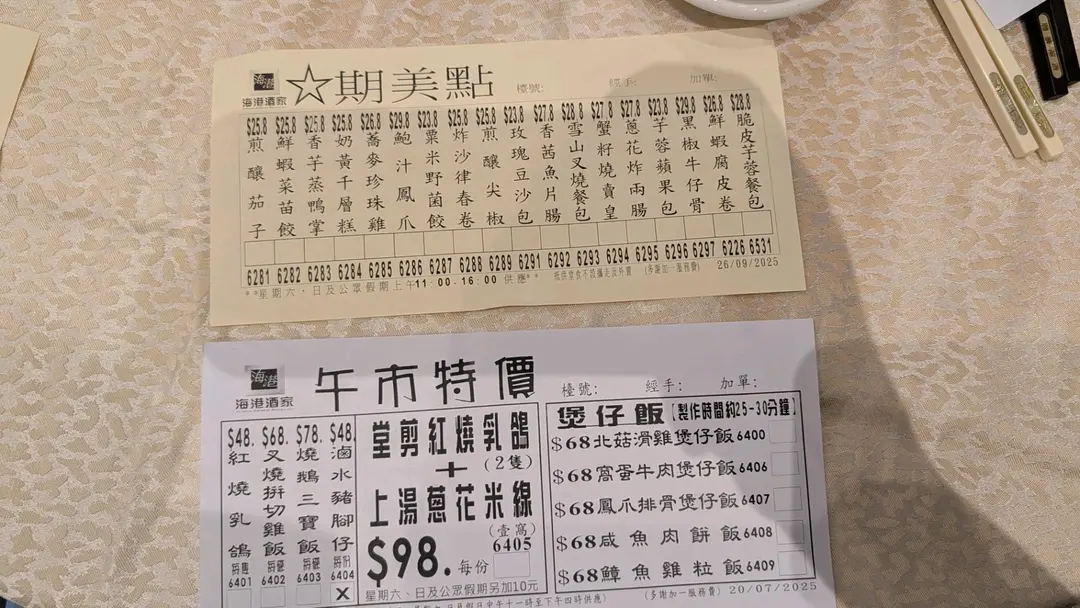 海港酒家
☆期美點
檯號:
經手:
加單:
$25.8 煎釀茄子 6281
$25.8 鮮蝦菜苗餃 6282
$25.8 香芋蒸鴨掌 6283
$25.8 奶黃千層糕 6284
$26.8 蕎麥珍珠雞 6285
$29.8 鮑汁鳳爪 6286
$23.8 粟米野菌餃 6287
$25.8 炸沙律春卷 6288
$25.8 煎釀尖椒 6289
$23.8 玫瑰豆沙包 6291
$27.8 香茜魚片腸 6292
$28.8 雪山叉燒餐包 6293
$27.8 蟹籽燒賣皇 6294
$27.8 蔥花炸兩腸 6295
$23.8 芋蓉蘋果包 6296
$29.8 黑椒牛仔骨 6297
$26.8 鮮蝦腐皮卷 6226
$28.8 脆皮芋蓉餐包 6531
**星期六、日及公眾假期上午11:00-16:00 供應**
(多謝加一服務費) 26/09/2025
海港酒家
午市特價
檯號:
經手:
加單:
$48. 紅燒乳鴿 6401
$68. 叉燒拼切雞飯 6402
$78. 燒鵝三寶飯 6403
$48. 滷水豬腳仔 6404 X
堂剪紅燒乳鴿
(2隻)
+
上湯蔥花米線
(壹窩)
6405
$98. 每份
星期六、日及公眾假期另加10元
煲仔飯【製作時間約25-30分鐘】
$68北菇滑雞煲仔飯 6400
$68窩蛋牛肉煲仔飯 6406
$68鳳爪排骨煲仔飯 6407
$68咸魚肉餅飯 6408
$68鱆魚雞粒飯 6409
(多謝加一服務費) 20/07/2025